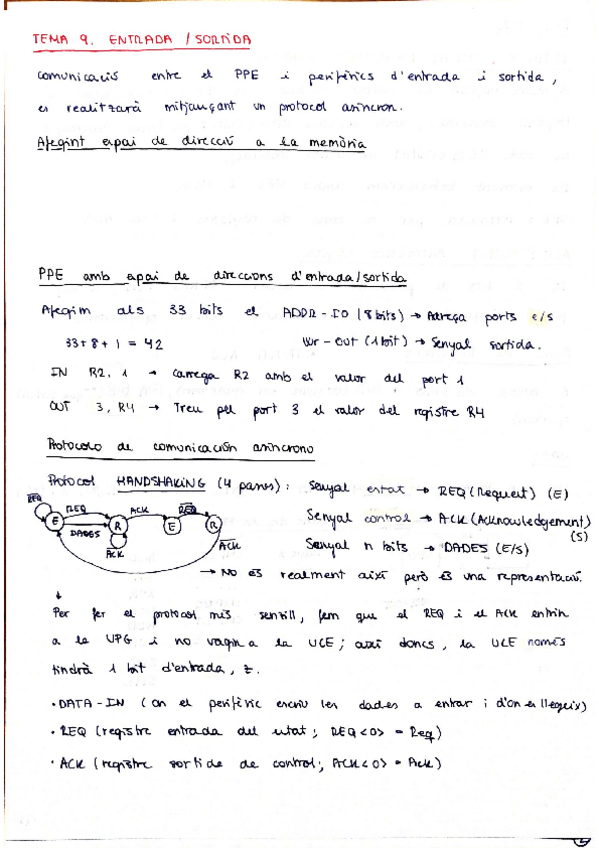 TEMA 9. ENTRADA / SORTIDA
Comunicació entre el PPE i perifèrics d'entrada i sortida,
es realitzarà mitjançant un protocol asíncron.
Afegint espai de direcció a la memòria
PPE amb espai de direccions d'entrada/sortida
Afegim als 33 bits el ADDR-IO (8 bits) → Adreça ports e/s
33+8+1 = 42 Wr-Out (1 bit) → Senyal sortida.
IN R2, 1 → carrega R2 amb el valor del port 1
OUT 3, R4 → Treu pel port 3 el valor del registre R4
Protocolo de comunicación asíncrono
Protocol HANDSHAKING (4 passos): Senyal estat → REQ (Request) (E)
Senyal control → ACK (Acknowledgement) (S)
Senyal n bits → DADES (E/S)
R̅E̅Q̅ REQ ACK R̅E̅Q̅
E R E R
DADES A̅C̅K̅ A̅C̅K̅
→ NO és realment així però és una representació.
↓
Per fer el protocol més senzill, fem que el REQ i el ACK entrin
a la UPG i no vagin a la UCE; així doncs, la UCE només
tindrà 1 bit d'entrada, z.
· DATA-IN (on el perifèric escriu les dades a entrar i d'on es llegeix)
· REQ (registre entrada del estat; REQ<0> = Req)
· ACK (registre sortida de control; ACK<0> = Ack)